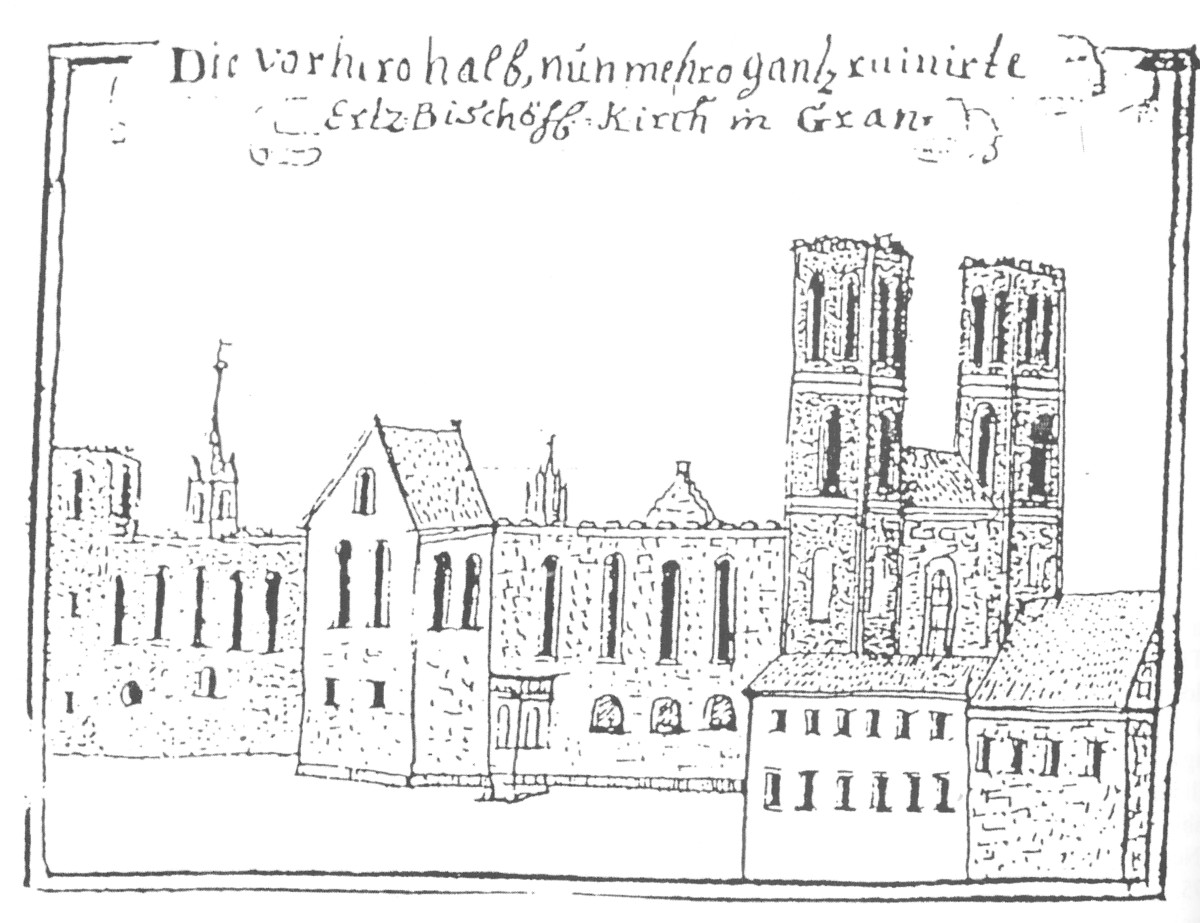 Die vorhero halb, nún mehro gantz ruinirte
Ertz-Bischöffl: Kirch in Gran.